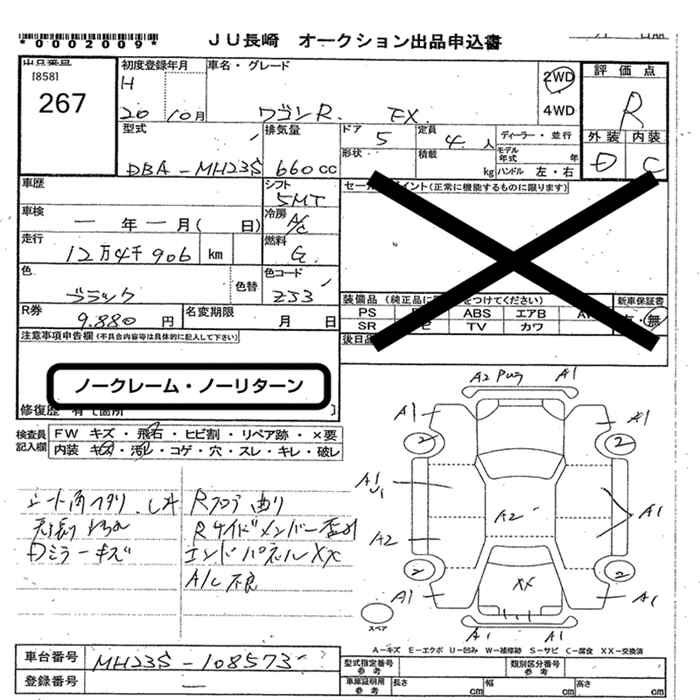 *0002009*
JU長崎 オークション出品申込書
出品番号
[858]
267
初度登録年月
H
20 10月
車名・グレード
ワゴンR. FX.
2WD
4WD
評価点
R
外装 内装
D C
型式
DBA-MH23S
排気量
660cc
ドア 5
形状
定員 4 人
積載 kg
ディーラー・並行
モデル年式 年
ハンドル 左・右
車歴
シフト
5MT
車検 ― 年 ― 月( 日)
冷房
A/C
走行
12万4千906 km
燃料
G
色
ブラック
色替
色コード
ZJ3
R券
9.880 円
名変期限
月 日
(正常に機能するものに限ります)
新車保証書
無
PS ABS エアB
SR TV カワ
後日品
注意事項申告欄(不具合内容等は具体的に記入して下さい)
ノークレーム・ノーリターン
検査員
記入欄
FW キズ・飛石・ヒビ割・リペア跡・×要
内装 キズ・汚レ・コゲ・穴・スレ・キレ・破レ
Rフロア曲り
エンドパネルXX
Dミラーキズ
A/C不良
A2 A1
A1 A1
2 2
A1
U1
A2 A2 A1
2 2
XX
A1 A1
A1 A1
スペア
A-キズ E-エクボ U-凹み W-補修跡 S-サビ C-腐食 XX-交換済
車台番号
MH23S-108573
登録番号
―
型式指定番号
参考
類別区分番号
参考
車庫証明用
参考
長さ cm 幅 cm 高さ cm